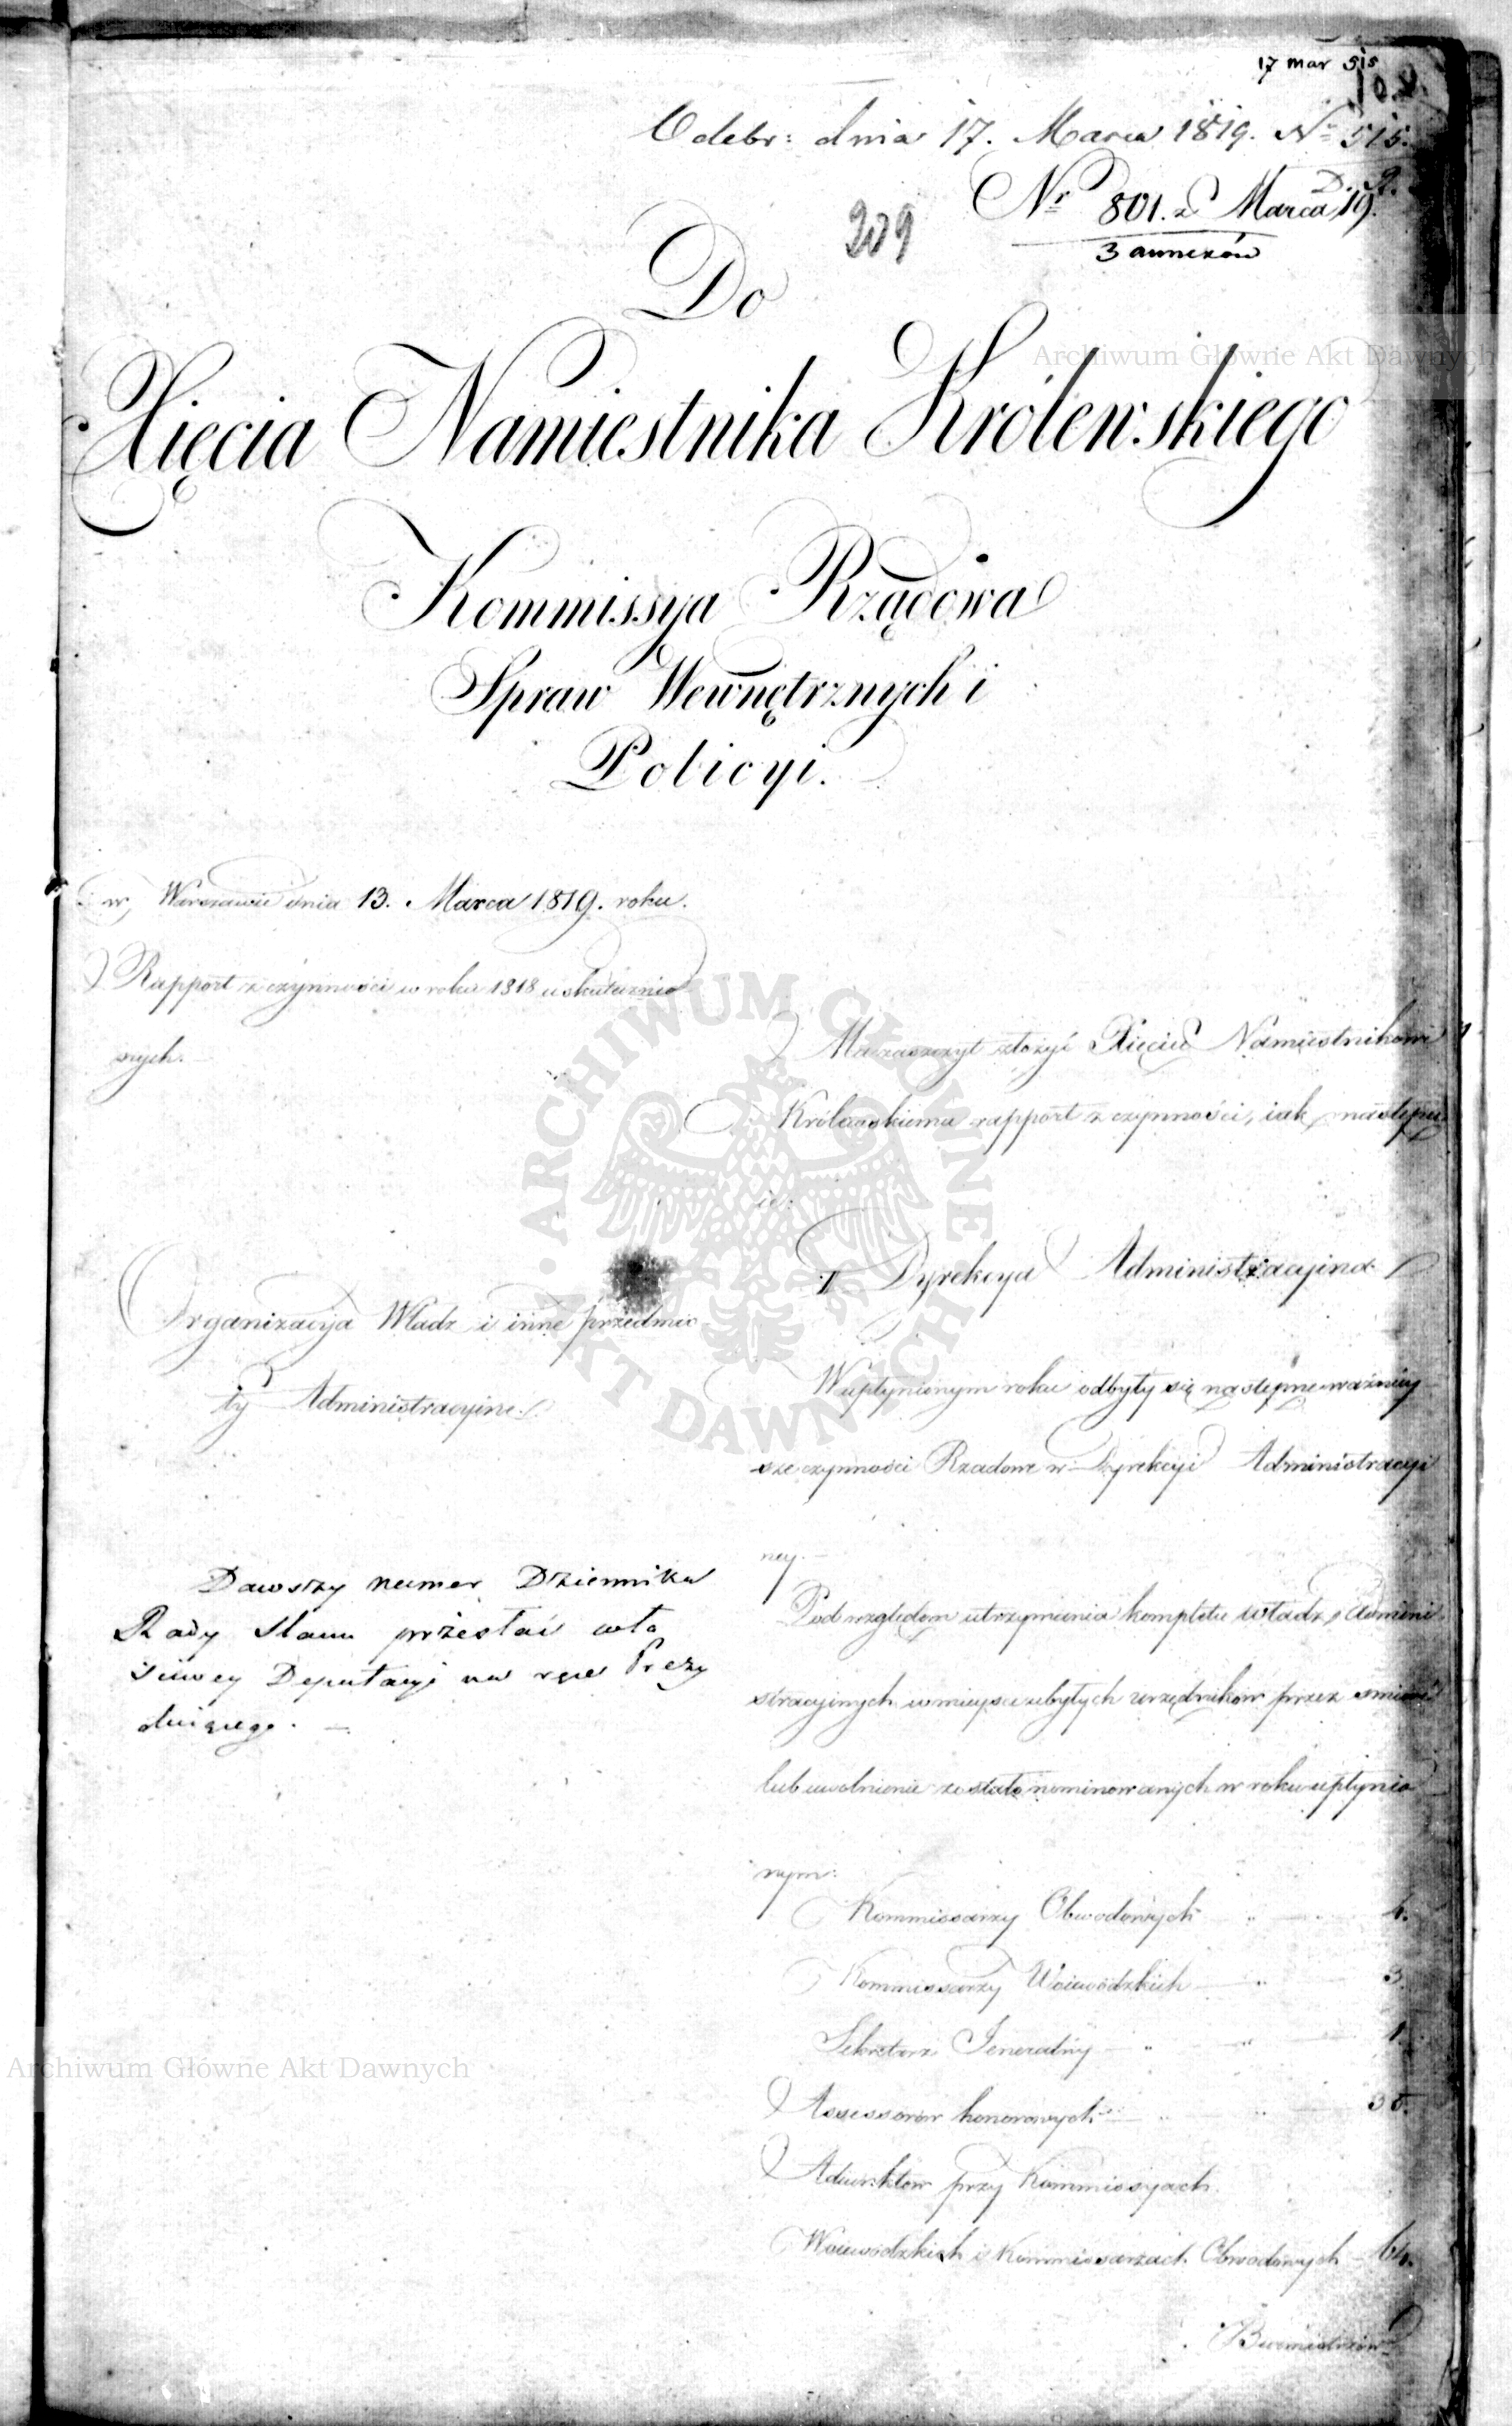 17 mar 515
Odebr: dnia 17. Marca 1819. No 515.
D. A.
Nr 801. z Marca 19.
3 annexów
209
Do
Xięcia Namiestnika Królewskiego
Kommissya Rządowa
Spraw Wewnętrznych i
Policyi.
w Warszawie dnia 13. Marca 1819. roku.
Rapport z czynności w roku 1818 uskutecznio
nych.
Ma zaszczyt złożyć Xięciu Namiestnikowi
Królewskiemu rapport z czynności, iak następu
ie:
I Dyrekcya Administracyina
Organizacyia Władz i inne przedmio
ty Administracyine.
W upłynionym roku odbyły się następne ważniey
sze czynności Rządowe w Dyrekcyi Administracyi
ney.
Dawszy numer Dziennika
Rady Stanu przesłać wła
ściwey Deputacyi na ręce Prezy
duiącego.
Pod względem utrzymania kompletu władz Admini
stracyinych w mieysce ubyłych urzędników przez śmierć
lub uwolnienie zostało nominowanych w roku upłynio
nym:
Kommissarzy Obwodowych 4.
Kommissarzy Woiewódzkich 3.
Sekretarz Jeneralny 1.
Assessorów honorowych 35.
Adiunktów przy Kommissyach
Woiewódzkich i Kommissarzach Obwodowych 64.
Burmistrzów
Archiwum Główne Akt Dawnych
ARCHIWUM GŁÓWNE AKT DAWNYCH
Archiwum Główne Akt Dawnych